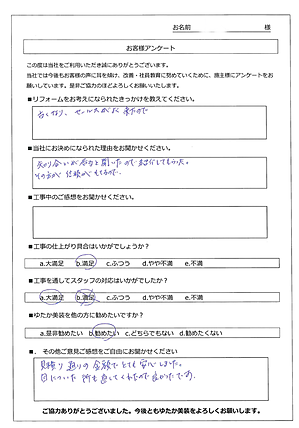 お名前　　　　　　　　様
お客様アンケート
この度は当社をご利用いただき誠にありがとうございます。
当社では今後もお客様の声に耳を傾け、改善・社員教育に努めていくために、施主様にアンケートをお
願いしています。是非ご協力のほどよろしくお願いいたします。
■リフォームをお考えになられたきっかけを教えてください。
古くなり、セールスがよく来たので
■当社にお決めになられた理由をお聞かせください。
知り合いが
その方が信頼がもてるので。
■工事中のご感想をお聞かせください。
■工事の仕上がり具合はいかがでしょうか？
a.大満足　b.満足　c.ふつう　d.やや不満　e.不満
■工事を通してスタッフの対応はいかがでしたか？
a.大満足　b.満足　c.ふつう　d.やや不満　e.不満
■ゆたか美装を他の方に勧めたいですか？
a.是非勧めたい　b.勧めたい　c.どちらでもない　d.勧めたくない
■．その他ご意見ご感想をご自由にお聞かせください
見積り通りの金額でとても安心しました。
目についた所も直してくれたので良かったです。
ご協力ありがとうございました。今後ともゆたか美装をよろしくお願いします。